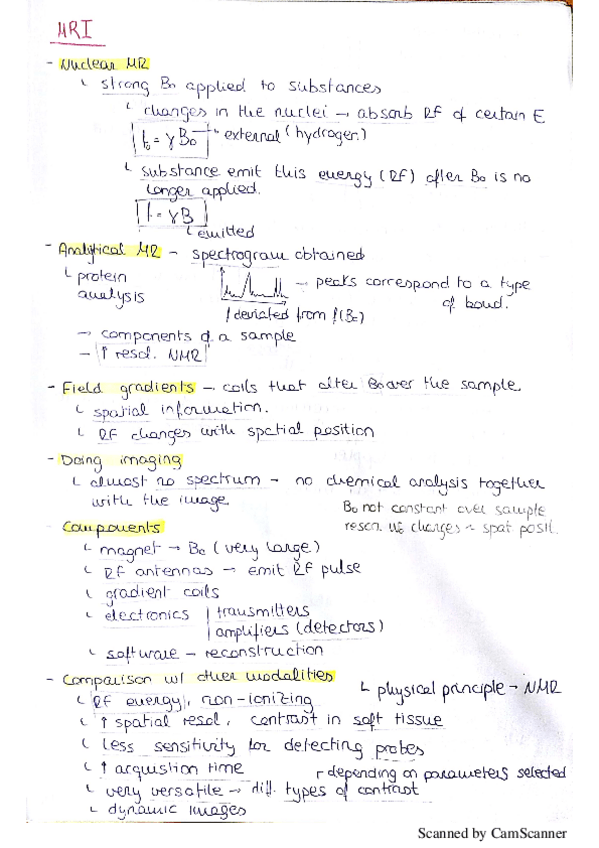 MRI
- Nuclear MR
↳ strong B0 applied to substances
↳ changes in the nuclei → absorb RF of certain E
f0 = γ B0 → external (hydrogen)
↳ substance emit this energy (RF) after B0 is no
longer applied.
f = γB
↳ emitted
- Analytical MR - spectrogram obtained
↳ protein
analysis
→ peaks correspond to a type
of bond.
/ deviated from f(B0)
→ components of a sample
- ↑ resol. NMR
- Field gradients - coils that alter B0 over the sample
↳ spatial information.
↳ RF changes with spatial position
- Doing imaging
↳ almost no spectrum - no chemical analysis together
with the image
B0 not constant over sample
reson. changes ~ spat. posit.
Components
↳ magnet → B0 (very large)
↳ RF antennas → emit RF pulse
↳ gradient coils
↳ electronics | transmitters
| amplifiers (detectors)
↳ software - reconstruction
- Comparison w/ other modalities
↳ physical principle - NMR
↳ RF energy, non-ionizing
↳ ↑ spatial resol, contrast in soft tissue
↳ less sensitivity for detecting probes
↳ ↑ acquistion time
depending on parameters selected
↳ very versatile → diff. types of contrast
↳ dynamic images
Scanned by CamScanner